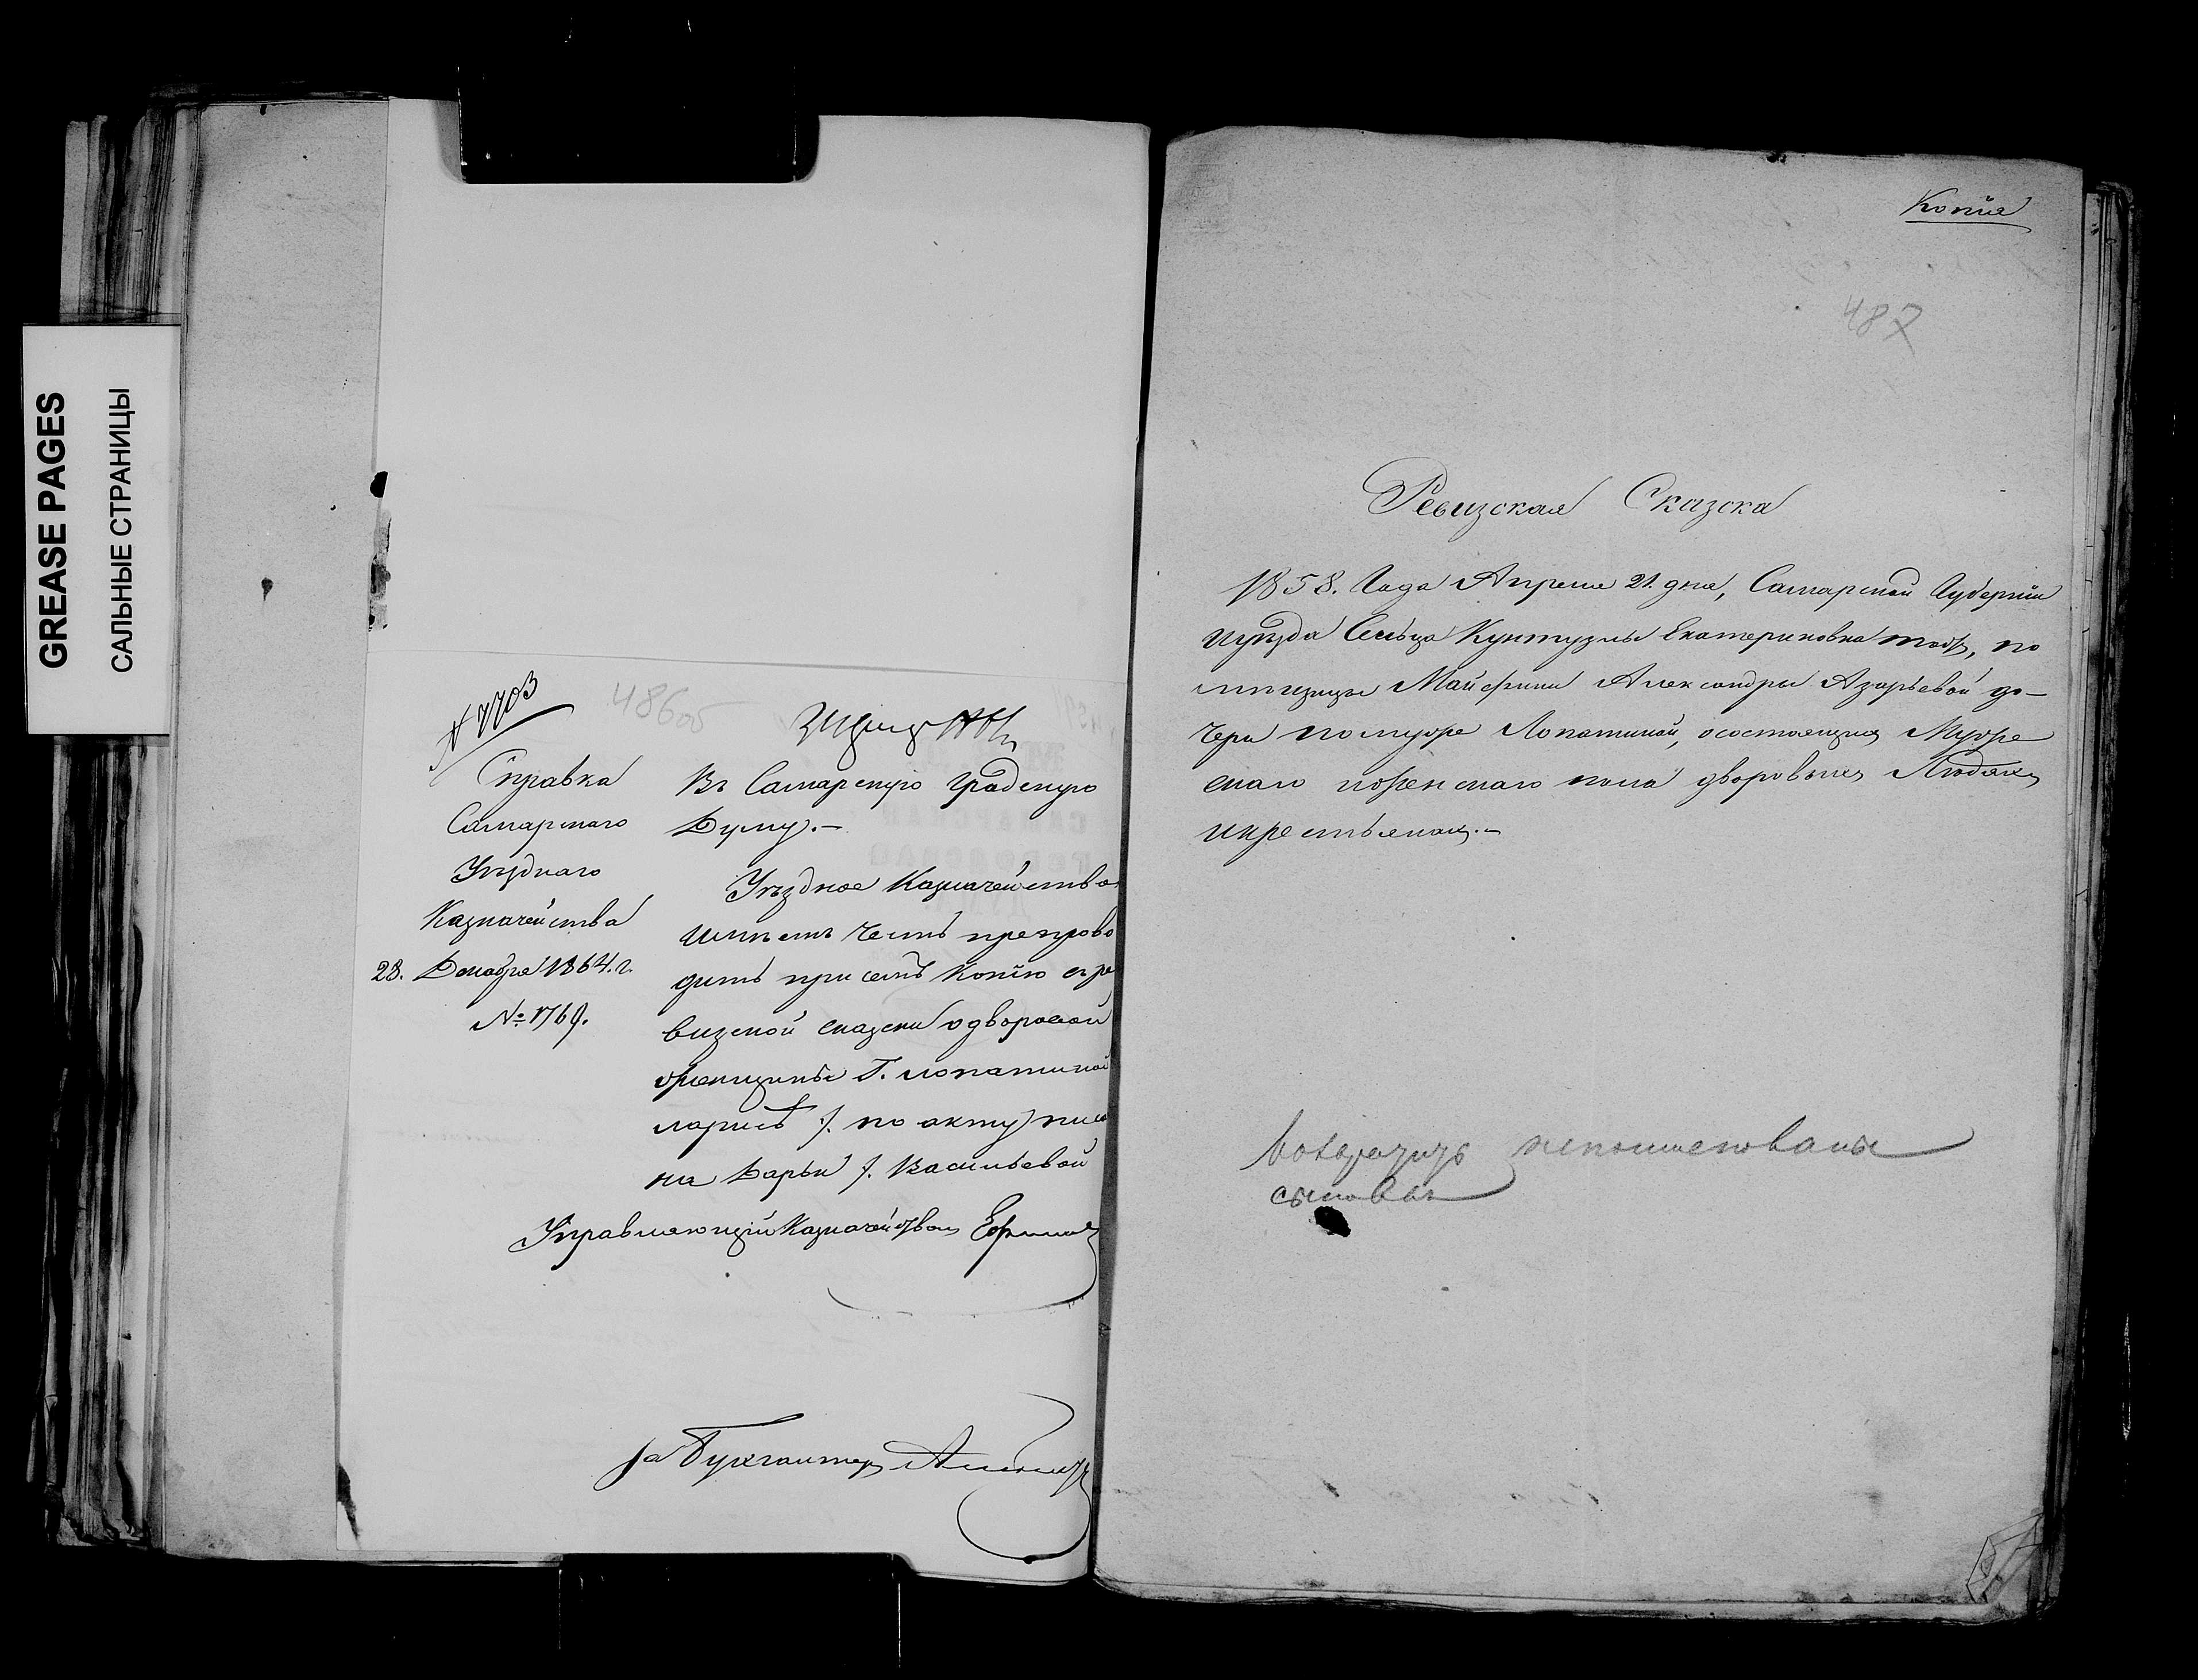 GREASE PAGES
САЛЬНЫЕ СТРАНИЦЫ
№ 7703
486об
Справка
Самарскаго
Уѣзднаго
Казначейства
28. Декабря 1864. г.
№ 1769.
Въ Самарскую Градскую
Думу.–
Уѣздное Казначейство
имѣетъ честь препрово
дить при семъ Копію съ ре
визской сказки о дворовой
женщины Г. Лопатиной
по акту
на Дарьи Васильевой
Управляющій Казначействомъ
За Бухгалтера
Копія
487
Ревизская Сказка
1858. Года Апреля 21. дня, Самарской Губерніи
и уѣзда Сельца Кунтузлы Екатериновка тожъ, по
мѣщицы Маіорши Александры Азарьевой до–
чери по мужѣ Лопатиной, о состоящихъ Муже
скаго и женскаго пола дворовыхъ Людяхъ
и крестьянахъ.–
непоименованы
сыновья